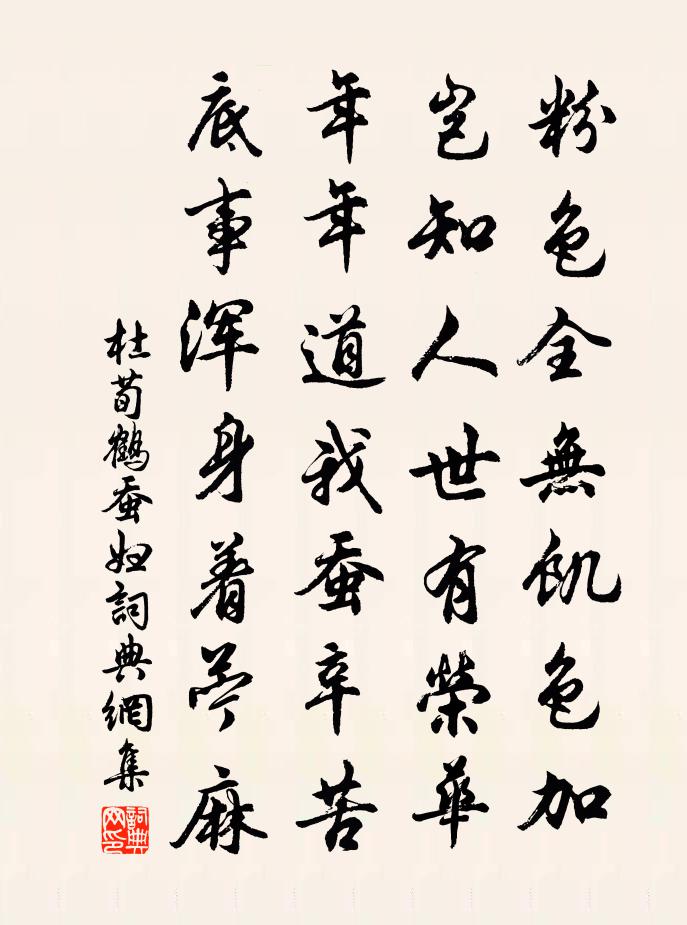 粉色全無飢色加
豈知人世有榮華
年年道我蚕辛苦
底事渾身着苧麻
杜荀鶴蚕妇詞典網集
詞典网印